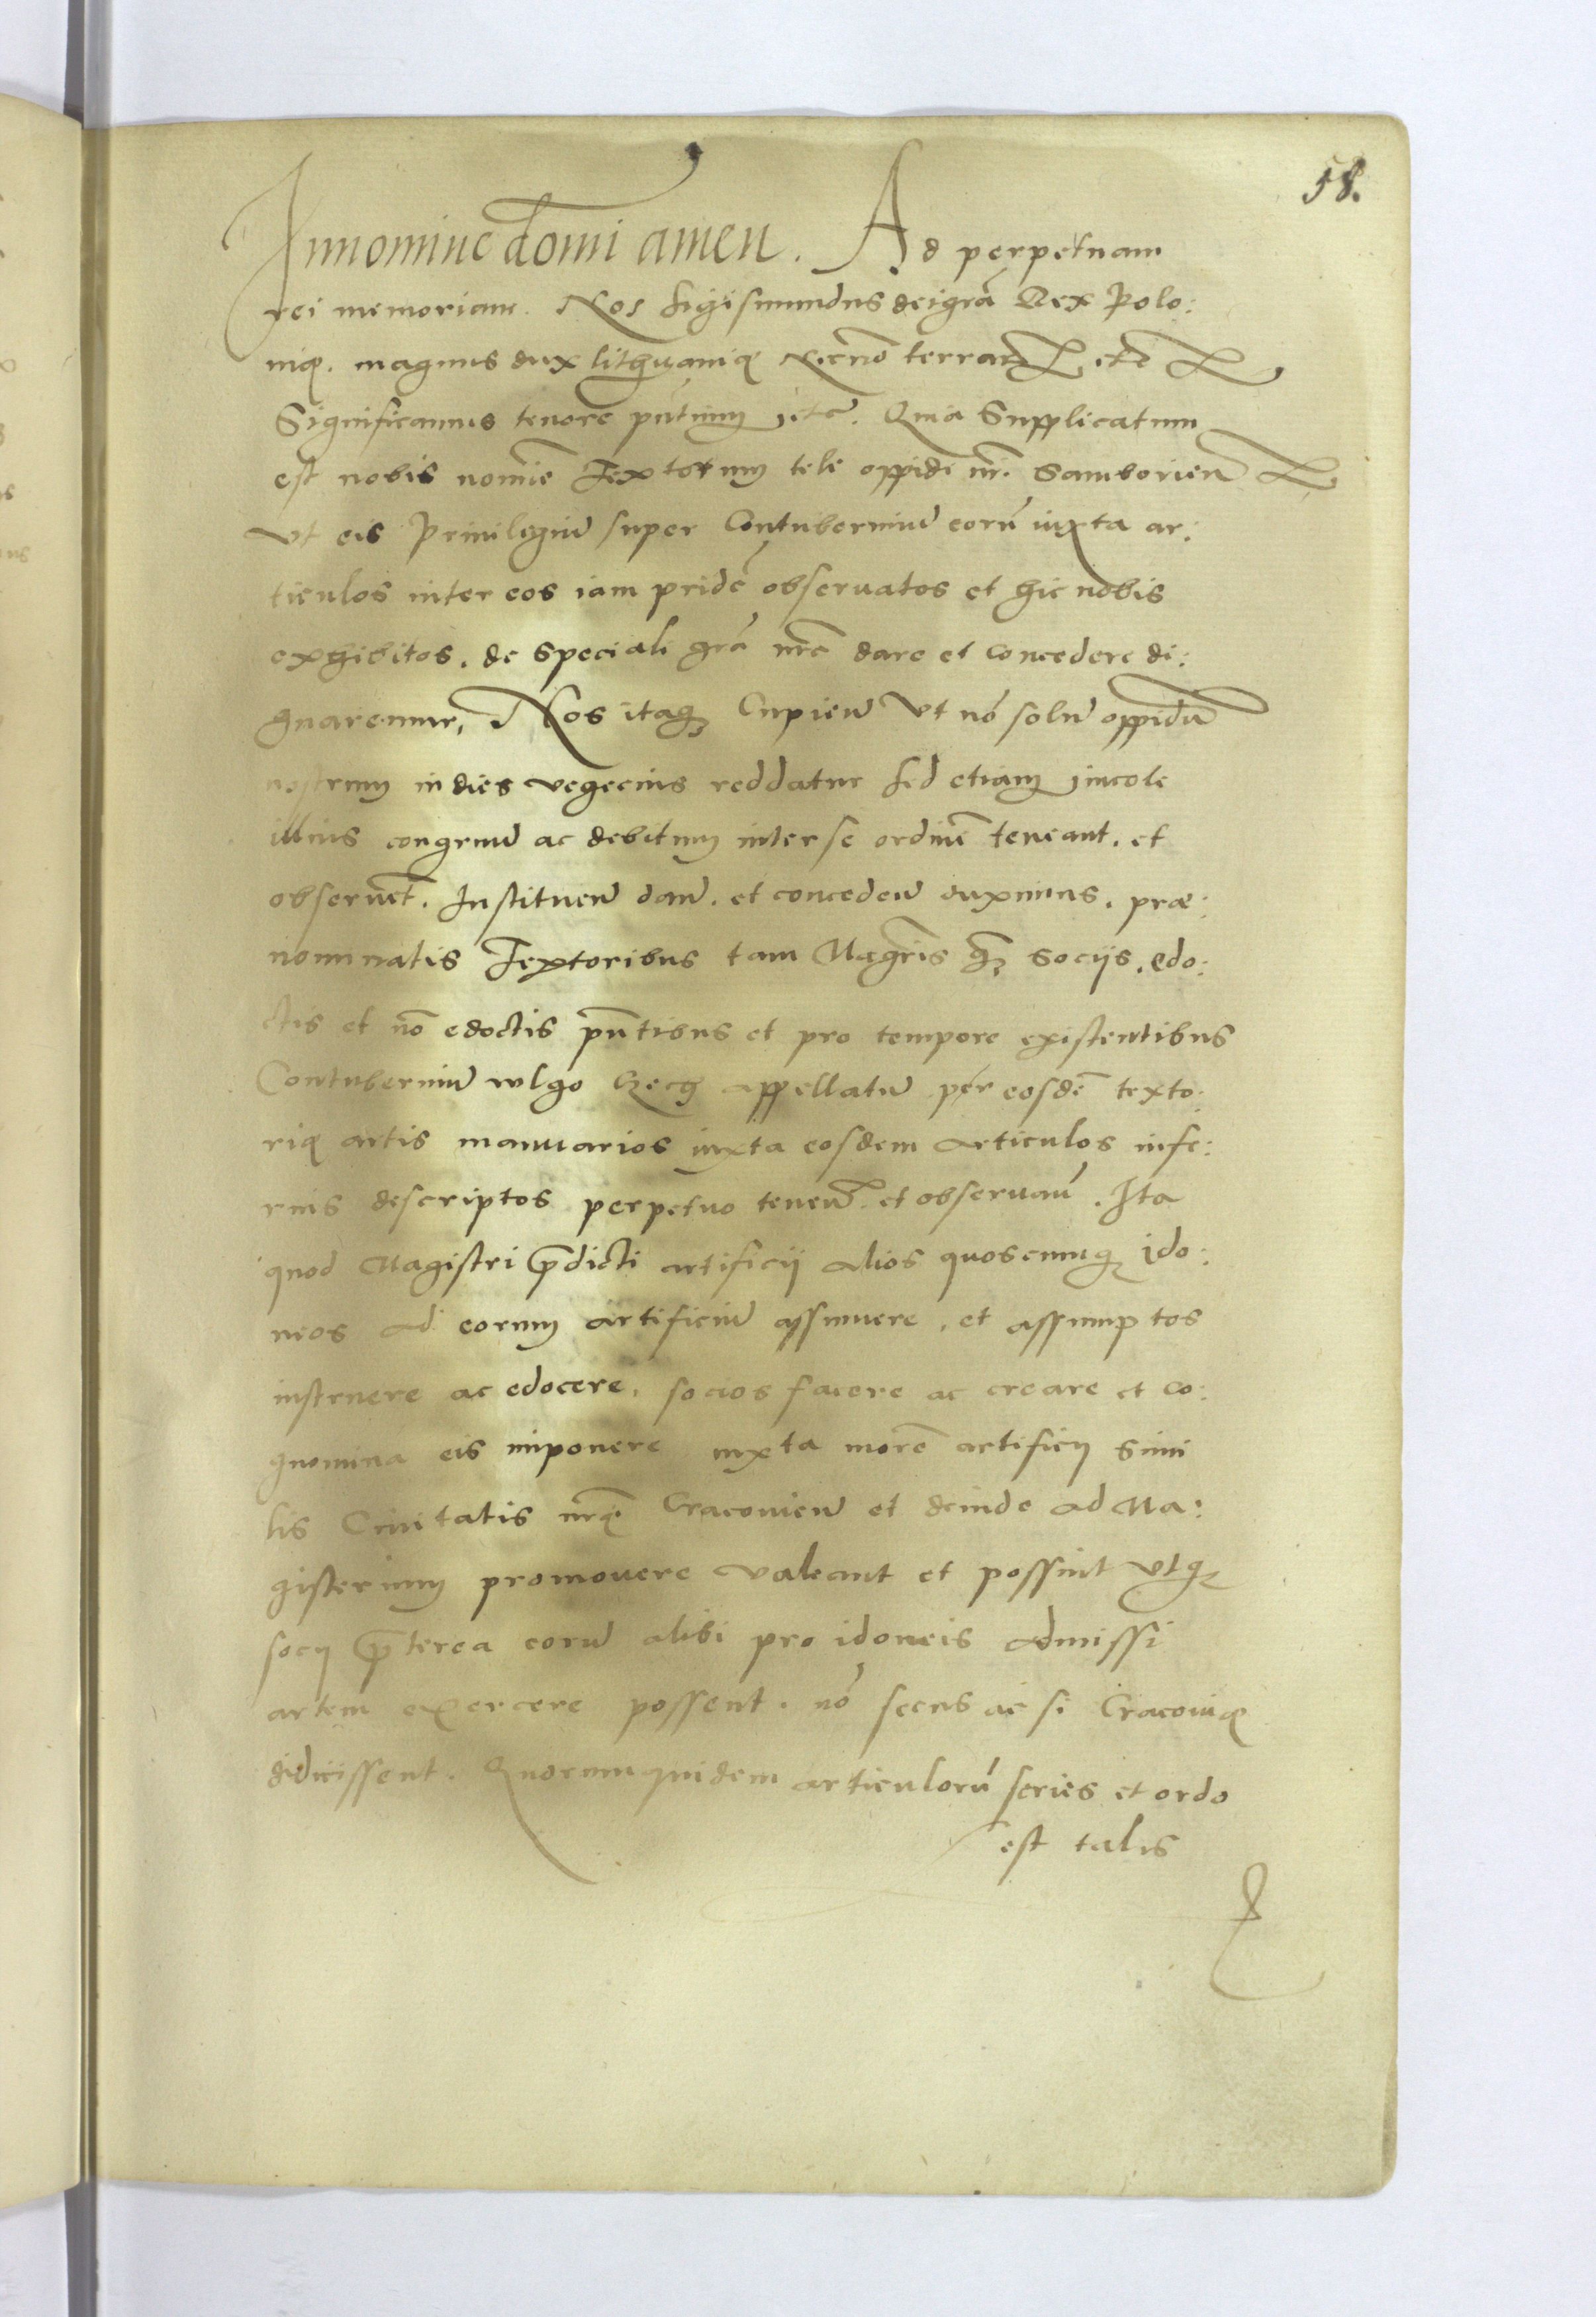 58.
Innomine domi amen. Ad perpetuam
rei memoriam. Nos Sigismundus dei grã Rex Polo:
nię. magnus dux lithuanię Necnõ terrarũ etc
Significamus tenore pñtium etc. Quia Supplicatum
est nobis nomĩe Textorum tele oppidi nr̃i Samborien̄
Vt eis Priuilegiũ super Contuberniũ eorũ iuxta ar:
ticulos inter eos iam pridẽ obseruatos et hic nobis
exhibitos. de speciali grã nr̃e dare et concedere di:
gnaremur, Nos itaq; Cupien̄ Vt nõ solũ oppidũ
nostrum in dies vegecius reddatur sed etiam incole
illius congruũ ac debitum inter se ordinẽ teneant. et
obseruẽt. Instituen̄ dan̄. et conceden̄ duximus. præ:
nominatis Textoribus tam Magr̃is q̃; socijs. edo:
ctis et nõ edoctis pñtibus et pro tempore existentibus
Contuberniũ wlgo Czech appellatũ per eosdẽ texto:
rię artis manuarios iuxta eosdem articulos infe:
rius descriptos perpetuo tenen̄. et obseruan̄. Ita
quod Magistri p̃dicti artificij alios quoscunq; ido:
neos ad eorum artificiũ assumere. et assumptos
instruere ac edocere. socios facere ac creare et co:
gnomina eis imponere iuxta morẽ artificij simi
lis Ciuitatis nr̃ę Cracouien̄ et deinde ad Ma:
gisterium promouere valeant et possint vtq;
socij p̃terea eorũ alibi pro idoneis admissi
artem exercere possent. nõ secus ac si Cracouię
didicissent. Quorum quidem articulorũ series et ordo
est talis